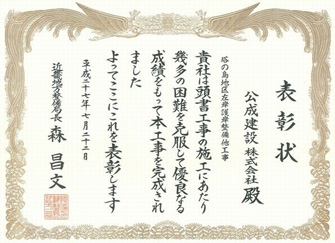 表彰状
公成建設株式会社 殿
塔の島地区左岸護岸整備他工事
貴社は頭書工事の施工にあたり
幾多の困難を克服して優良なる
成績をもって本工事を完成され
ました
よってここにこれを表彰します
平成二十七年七月二十三日
近畿地方整備局長 森昌文